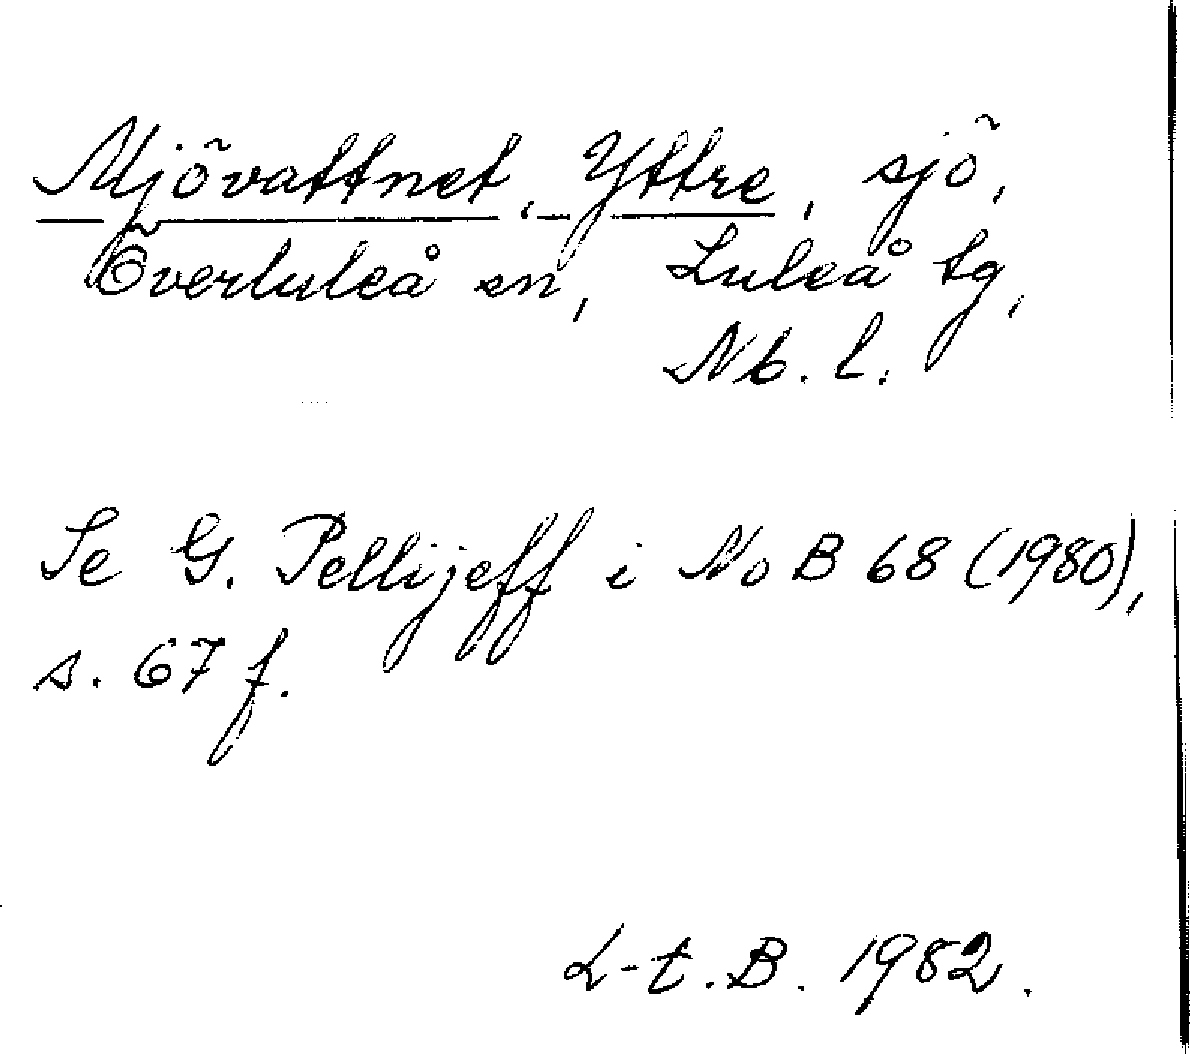 Mjövattnet, Yttre, sjö,
Överluleå sn, Luleå tg,
Nb. l.
Se G. Pellijeff i NoB 68 (1980),
s. 67 f.
L-t. B. 1982.